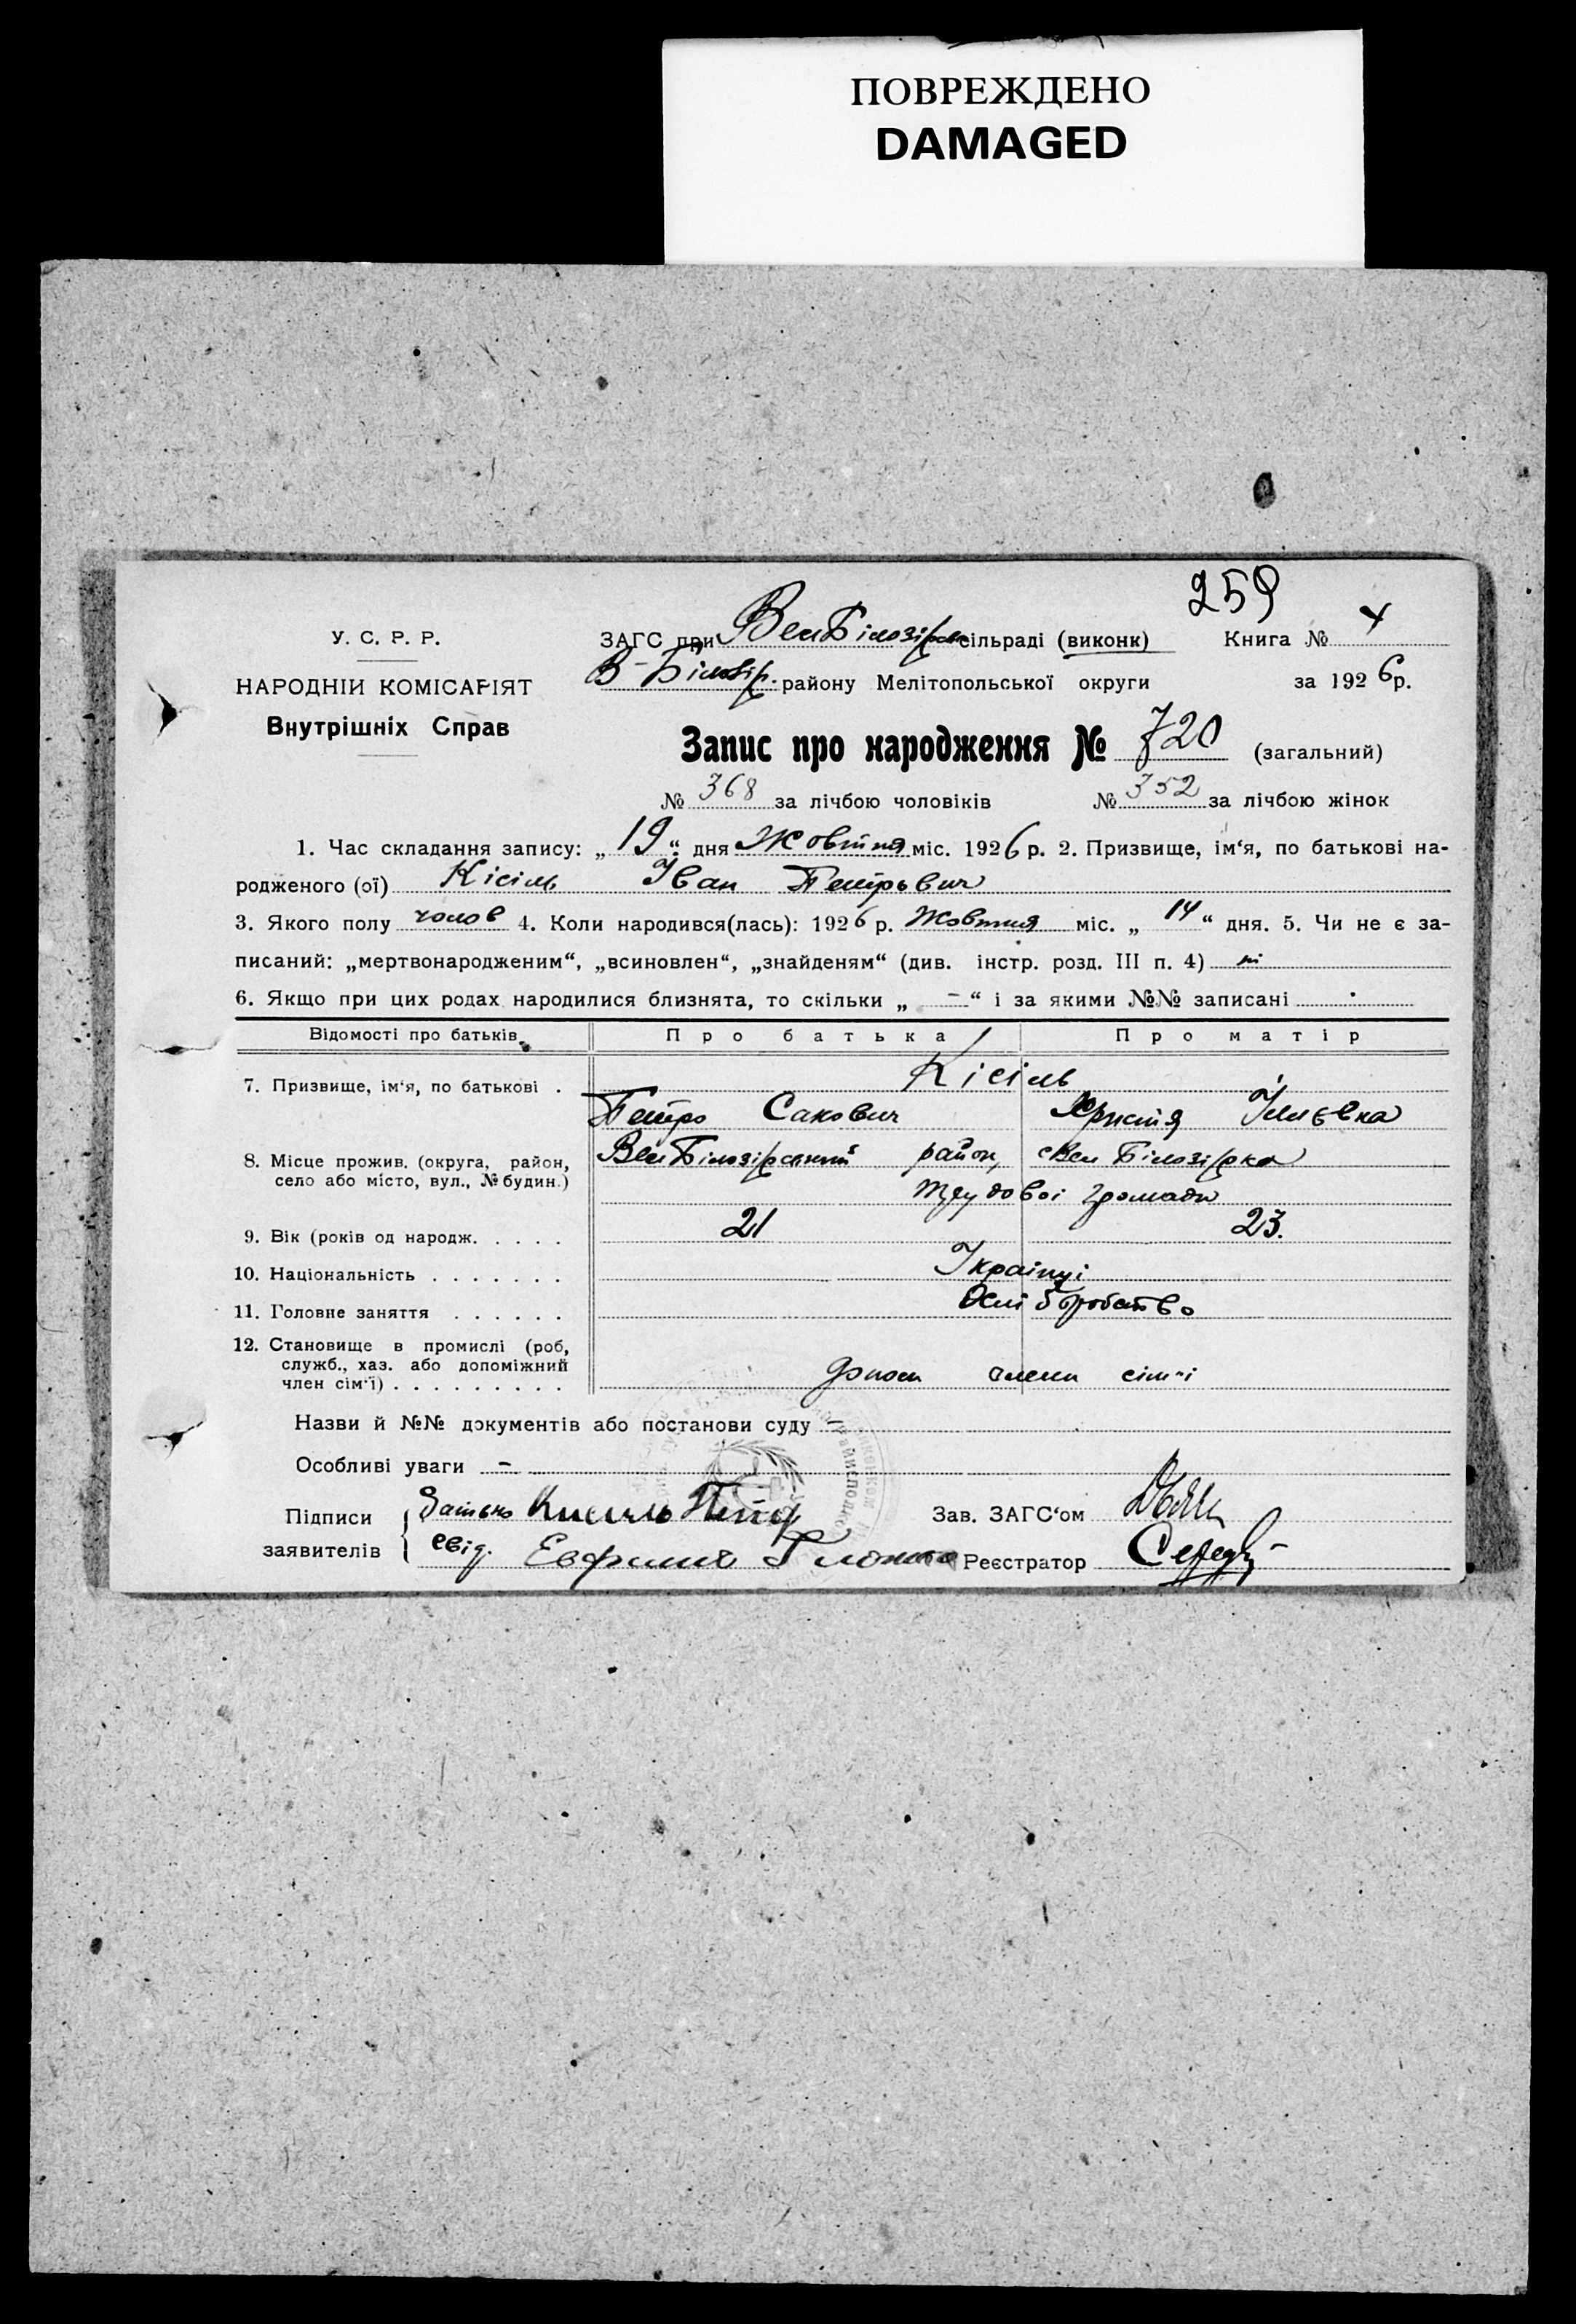 ПОВРЕЖДЕНО
DAMAGED
259
У. С. Р. Р.
ЗАГС при ВелБілозірськ сільраді (виконк) Книга № 4
НАРОДНІЙ КОМІСАРІЯТ
В-Білозір. району Мелітопольської округи за 1926 р.
Внутрішніх Справ
Запис про народження № 720 (загальний)
№ 368 за лічбою чоловіків № 352 за лічбою жінок
1. Час складання запису: „19“ дня Жовтня міс. 1926 р. 2. Призвище, ім‘я, по батькові на-
родженого (ої) Кісіль Іван Петрович
3. Якого полу чолов 4. Коли народився(лась): 1926 р. Жовтня міс. „14“ дня. 5. Чи не є за-
писаний: „мертвонародженим“, „всиновлен“, „знайденям“ (див. інстр. розд. III п. 4) ні
6. Якщо при цих родах народилися близнята, то скільки „ - “ і за якими №№ записані
Відомості про батьків Про батька Про матір
7. Призвище, ім‘я, по батькові . Кісіль
Петро Сакович Христя Іллєвна
8. Місце прожив. (округа, район, ВелБілозірський район, с Вел Білозірка
село або місто, вул., № будин.)
Трудової громади
9. Вік (років од народж. . . . . 21 23.
10. Національність . . . . . . . Українці
11. Головне заняття . . . . . . Хліборобство
12. Становище в промислі (роб,
служб., хаз. або допоміжний
член сім‘ї) . . . . . . . . . допом члени сім'ї
Назви й №№ документів або постанови суду -
Особливі уваги -
Підписи Батько Кисиль Петр Зав. ЗАГС‘ом
заявителів свід. Реєстратор